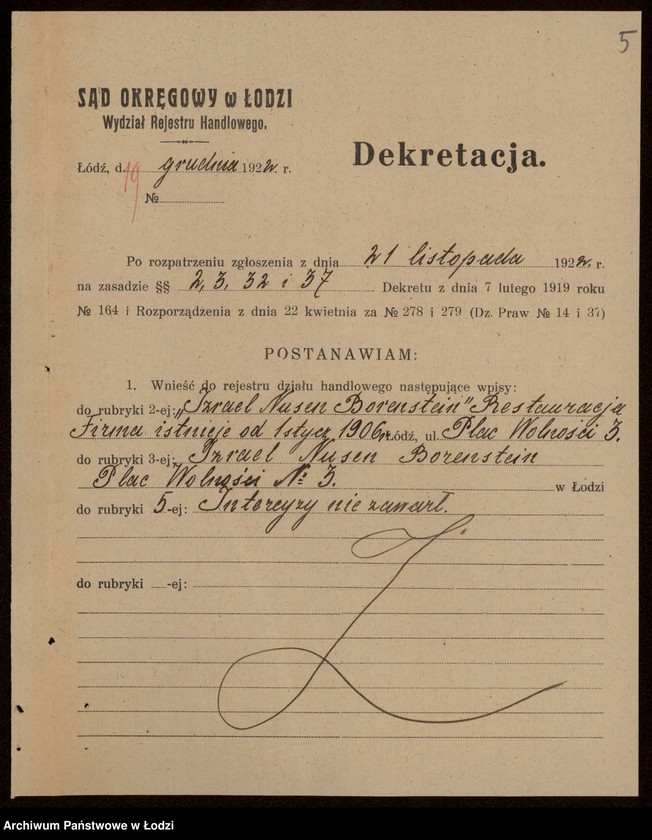 5
SĄD OKRĘGOWY w ŁODZI
Wydział Rejestru Handlowego.
Dekretacja.
Łódź, d. 19 grudnia 1922 r.
№
Po rozpatrzeniu zgłoszenia z dnia 21 listopada 1922 r.
na zasadzie §§ 2, 3, 32 i 37 Dekretu z dnia 7 lutego 1919 roku
№ 164 i Rozporządzenia z dnia 22 kwietnia za № 278 i 279 (Dz. Praw № 14 i 37)
POSTANAWIAM:
1. Wnieść do rejestru działu handlowego następujące wpisy:
do rubryki 2-ej: „Izrael Nusen Borenstein" Restauracja
Firma istnieje od 1 stycz. 1906 r. Łódź, ul. Plac Wolności 3.
do rubryki 3-ej: Izrael Nusen Borenstein
Plac Wolności № 3. w Łodzi
do rubryki 5-ej: Intercyzy nie zawarł.
do rubryki -ej:
Archiwum Państwowe w Łodzi